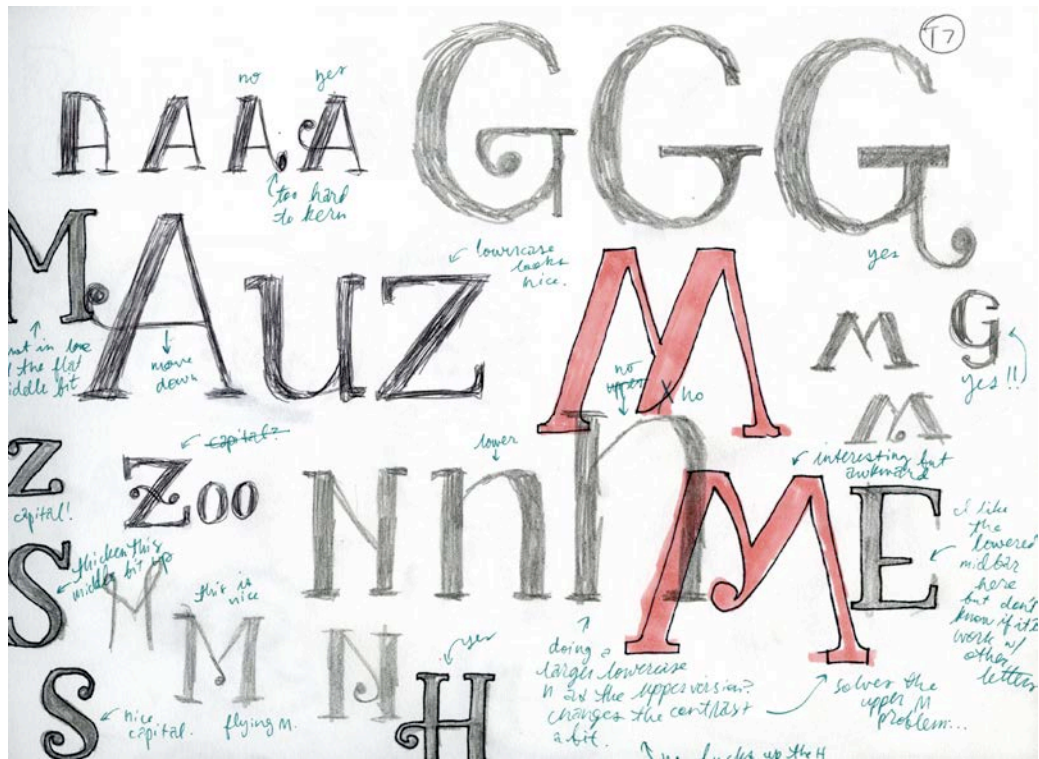 T7
G G G
no yes
A A A. A
too hard
to kern
M A u z
lowercase
looks
nice.
yes
M
M G
yes!!
not in love
the flat
middle bit
move
down
no
upper
X no
M
z
capital!
capital?
Zoo
lower
N n n
interesting but
awkward
M E
I like
the
lowered
midbar
here
but don't
know if it'll
work w/
other
letters
S
thicken this
middle bit up
M
this is
nice
M N
yes
S
nice
capital.
flying M.
H
doing a
larger lowercase
n as the upper version?
changes the contrast
a bit.
solves the
upper M
problem...
up the H